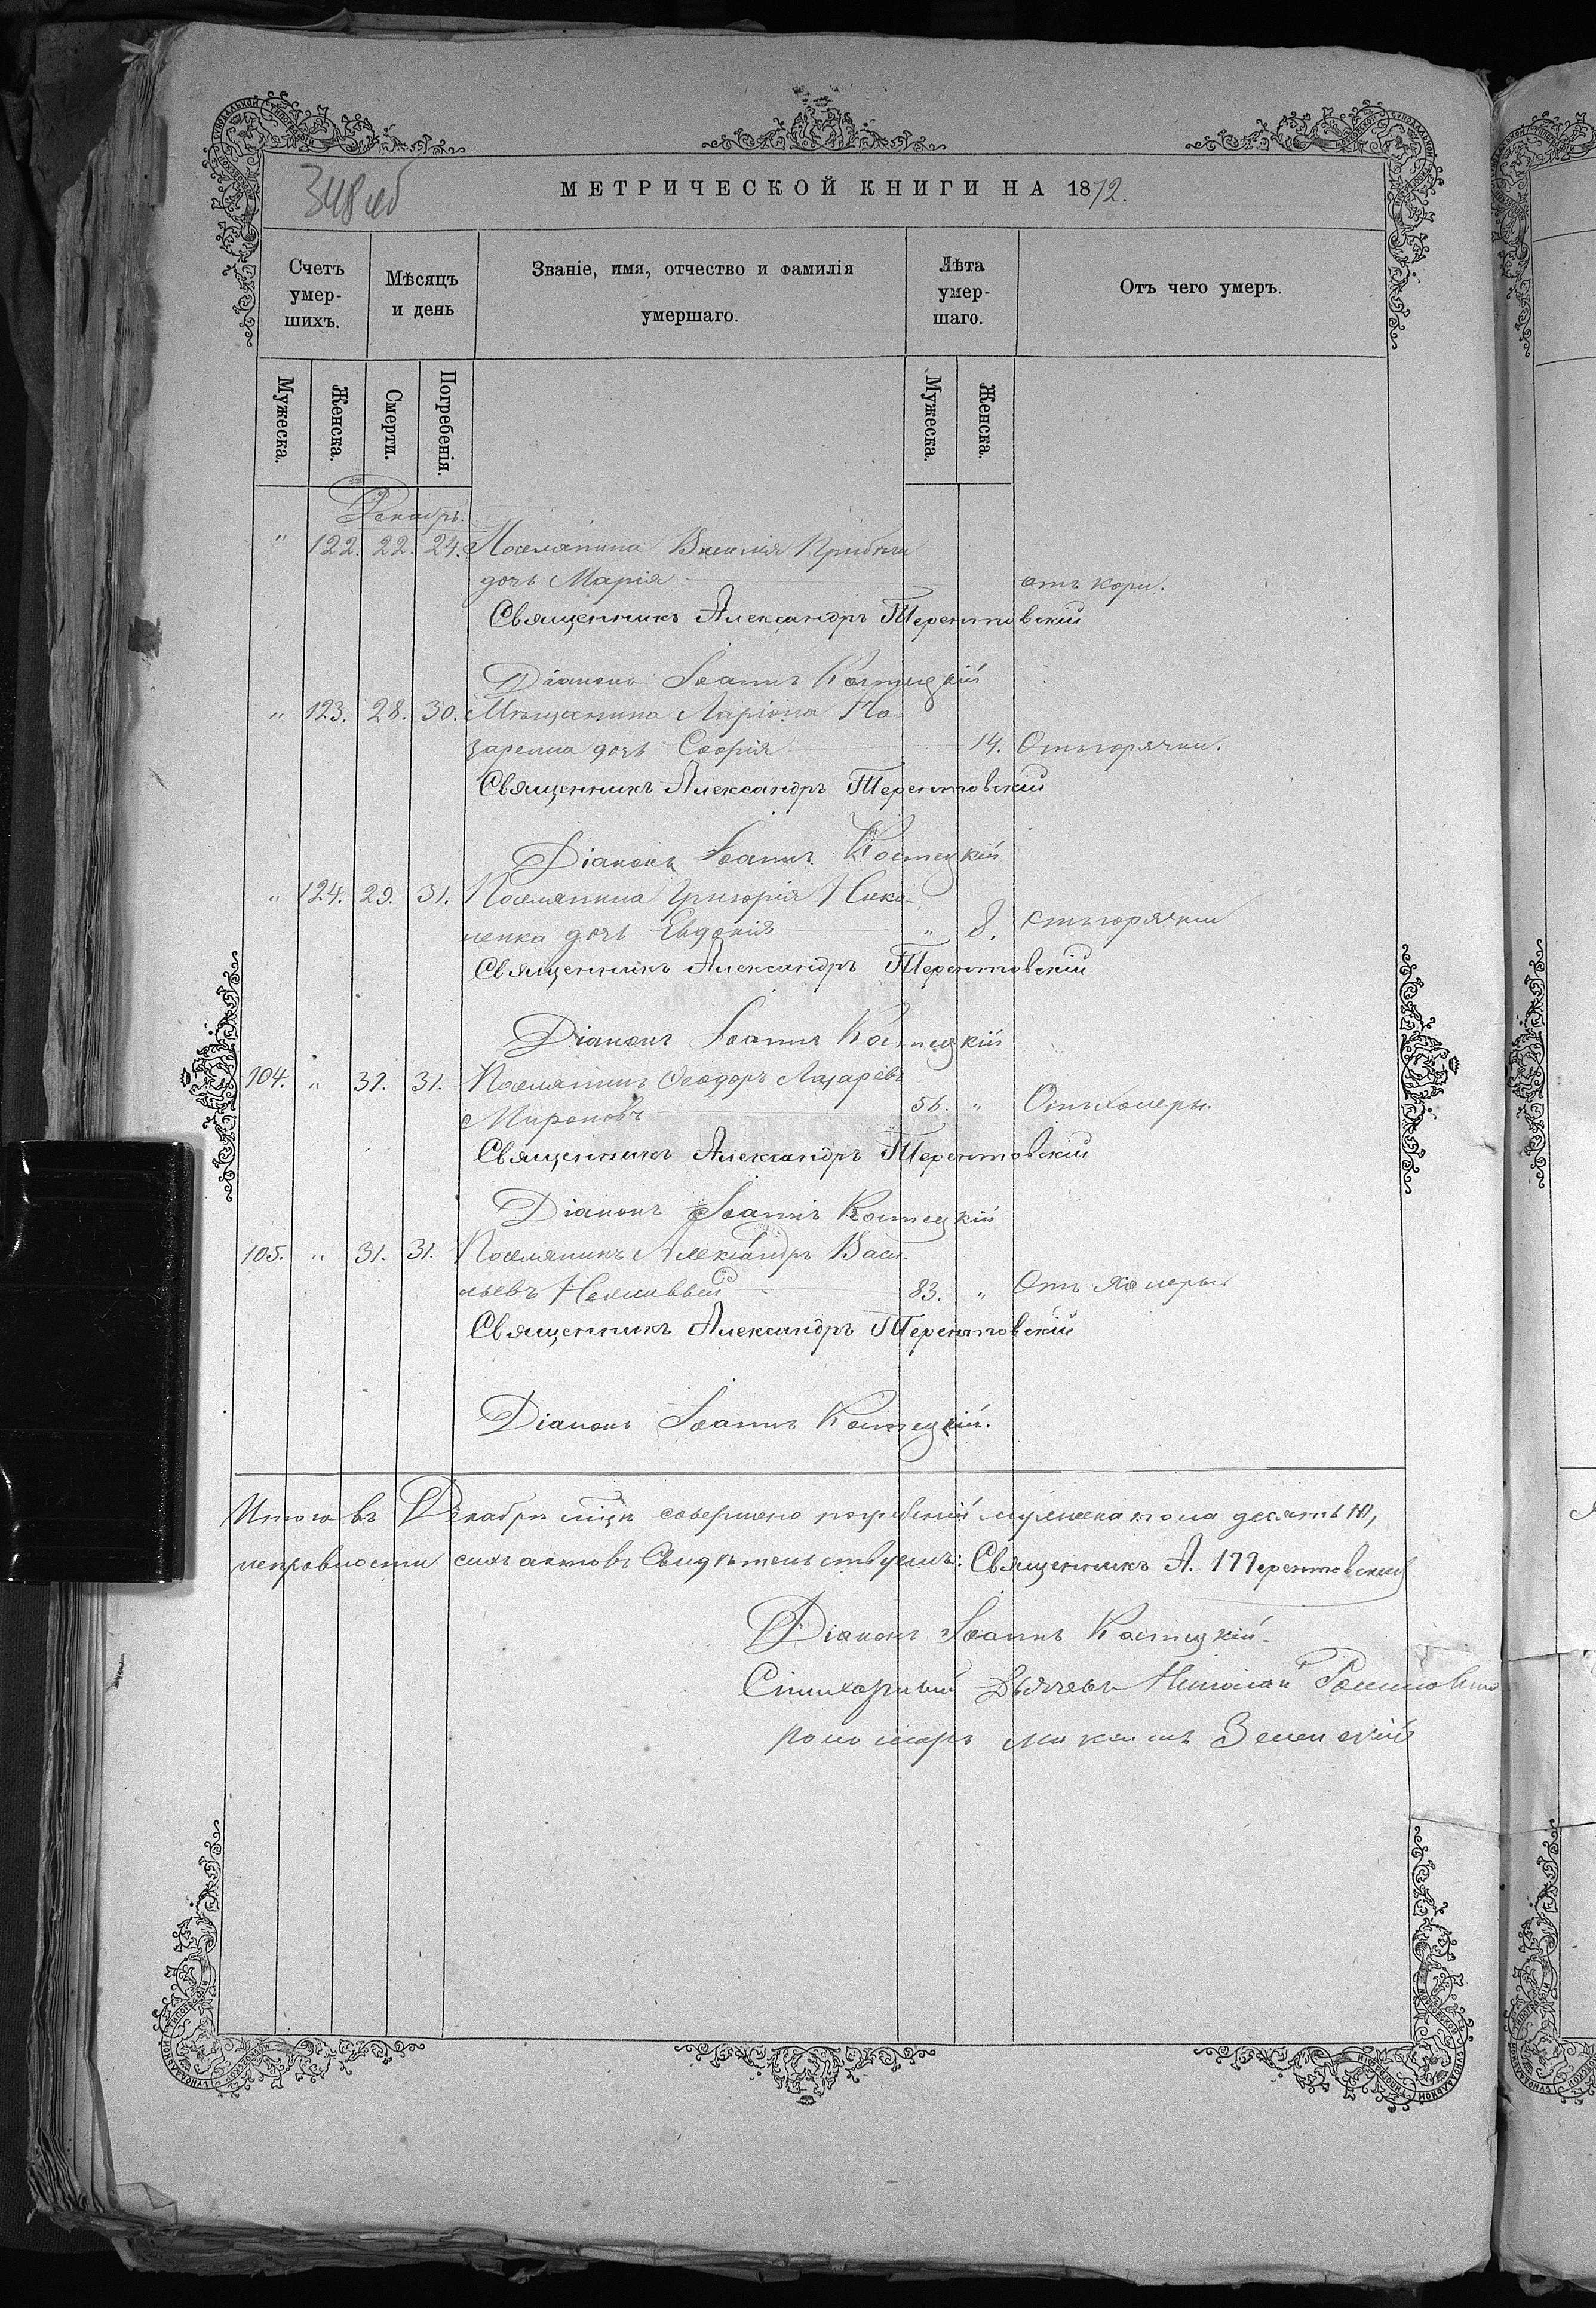 348 об
МЕТРИЧЕСКОЙ КНИГИ НА 1872.
Счетъ умер-шихъ.
Мѣсяцъ и день
Званіе, имя, отчество и фамилія умершаго.
Лѣта умер-шаго.
Отъ чего умеръ.
Мужеска. Женска. Смерти. Погребенія. Мужеска. Женска.
Декабрь.
" 122. 22. 24. Поселянина Василія
дочь Марія отъ кори.
Священникъ Александръ Терентовскій
Діаконъ Іоаннъ Костецкій
" 123. 28. 30. Мѣщанина Ларіона На-
дочь Софія 14. Отъ горячки.
Священникъ Александръ Терентовскій
Діаконъ Іоаннъ Костецкій
" 124. 29. 31. Поселянина Григорія Нико-
ненка дочь Евдокія " 8. отъ горячки
Священникъ Александръ Терентовскій
Діаконъ Іоаннъ Костецкій
104. " 31. 31. Поселянинъ Ѳеодоръ Лазаревъ
Мироновъ 56. " Отъ холеры.
Священникъ Александръ Терентовскій
Діаконъ Іоаннъ Костецкій
105. " 31. 31. Поселянинъ Александръ Васи-
льевъ 83. " Отъ холеры
Священникъ Александръ Терентовскій
Діаконъ Іоаннъ Костецкій.
Итого въ Декабрѣ мцѣ совершено погребеній мужеска пола десять 10,
сихъ актовъ Свидѣтельствуемъ: Священникъ А. Терентовскій
Діаконъ Іоаннъ Костецкій.
Стихарный Николай